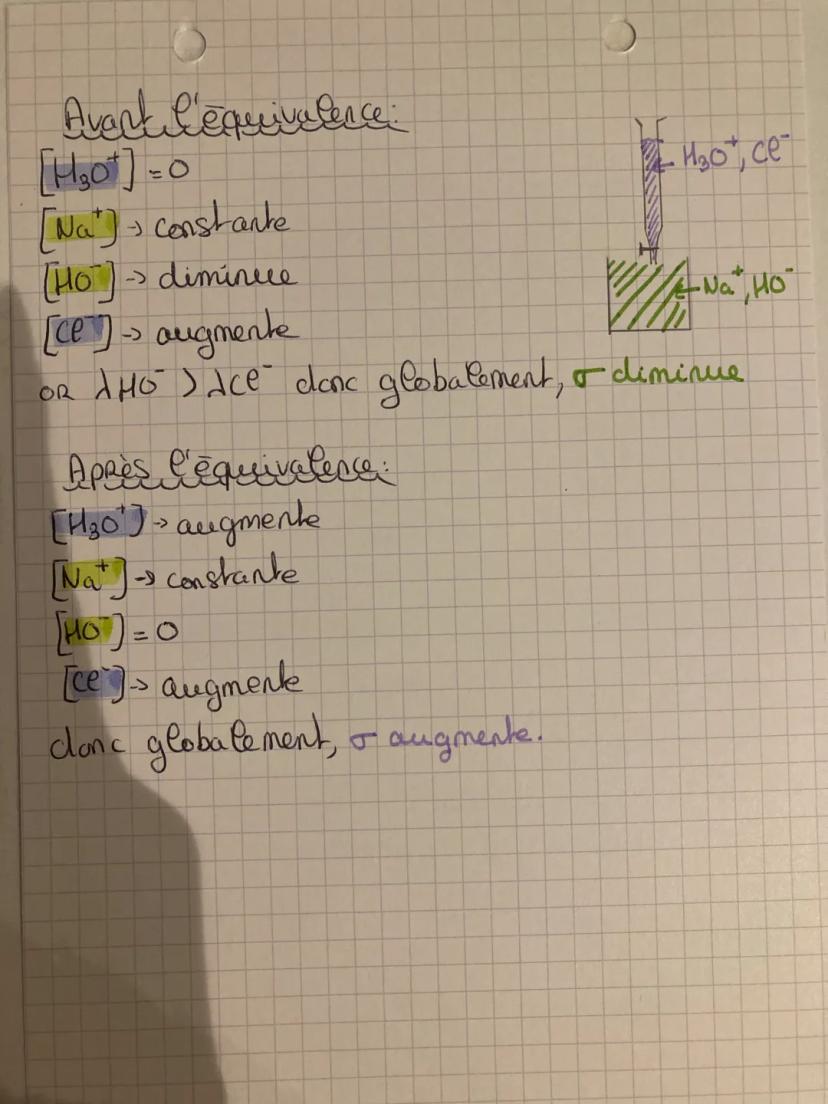 Avant l'équivalence:
[H₃O⁺] = 0
[Na⁺] → constante
[HO⁻] → diminue
[Cl⁻] → augmente
OR λHO⁻ > λCl⁻ donc globalement, σ diminue
H₃O⁺, Cl⁻
Na⁺, HO⁻
Après l'équivalence:
[H₃O⁺] → augmente
[Na⁺] → constante
[HO⁻] = 0
[Cl⁻] → augmente
donc globalement, σ augmente.